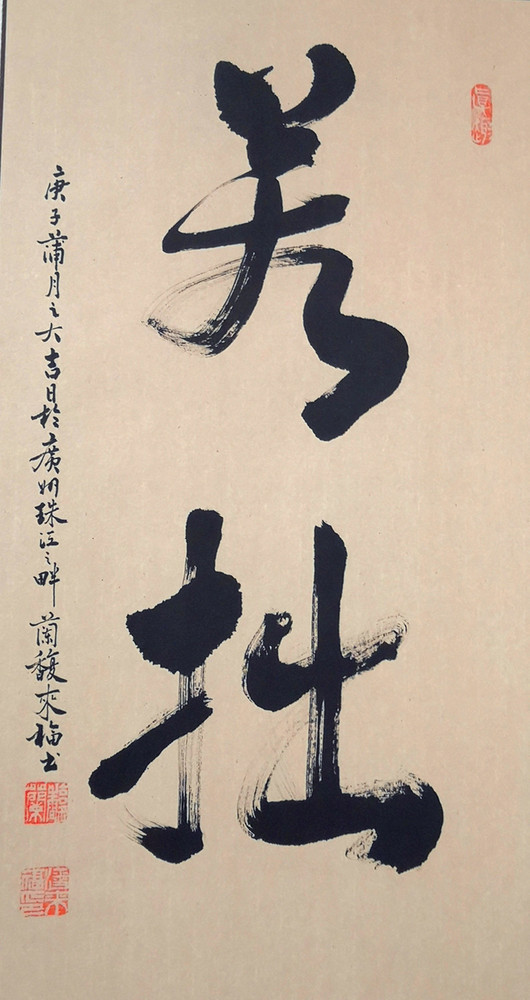 若拙
庚子蒲月之大吉日於廣州珠江之畔 蘭馥來福書